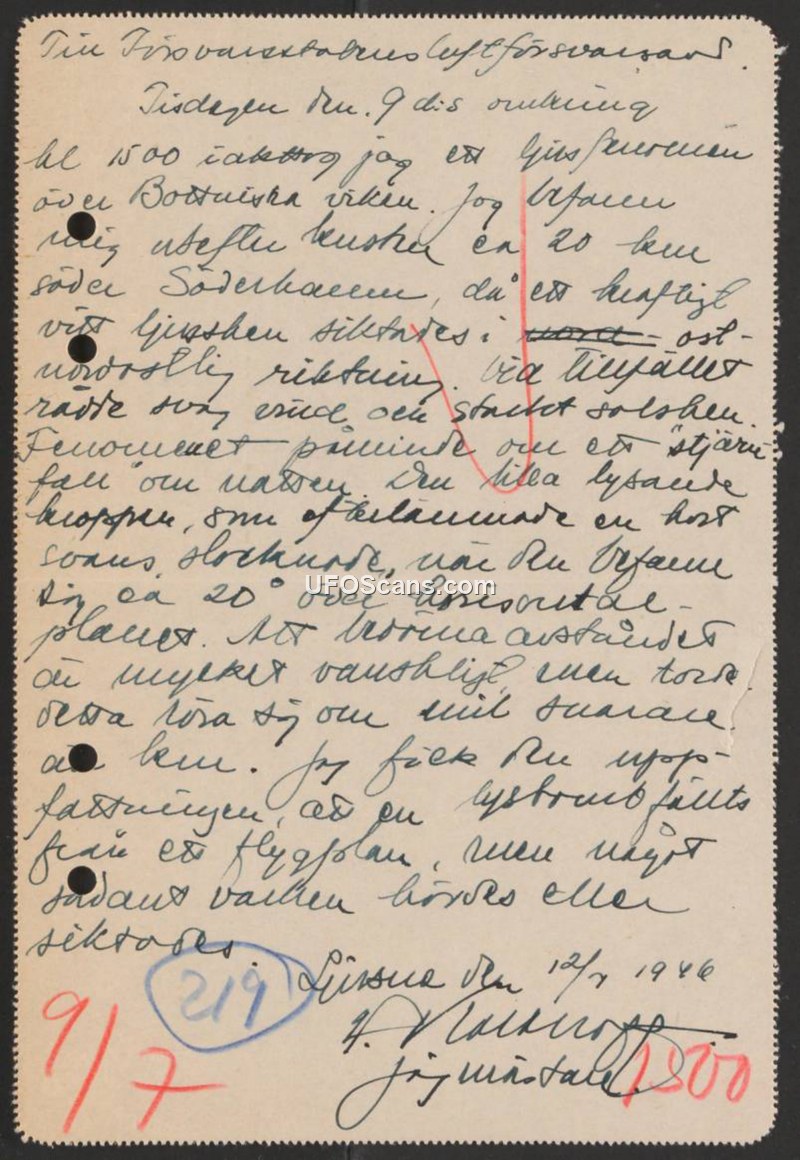 Till Försvarsstabens luftförsvarsavd.
Tisdagen den. 9 d:s omkring
kl 1500 iakttog jag ett ljusfenomen
över Bottniska viken. Jag befann
mig utefter kusten ca 20 km
söder Söderhamn, då ett kraftigt
vitt ljussken siktades i nord- ost-
nordostlig riktning. Vid tillfället
rådde svag vind och starkt solsken.
Fenomenet påminde om ett "stjärn-
fall" om natten. Den lilla lysande
kroppen, som efterlämnade en kort
svans, slocknade, när den befann
sig ca 20° över horisontal-
planet. Att bedöma avståndet
är mycket vanskligt, men torde
detta röra sig om mil snarare
än km. Jag fick den upp-
fattningen, att en lysbomb fällts
från ett flygplan, men något
sådant varken hördes eller
siktades.
219
Ljusne den 12/7 1946
Jägmästare.
9/7
1500
UFOScans.com